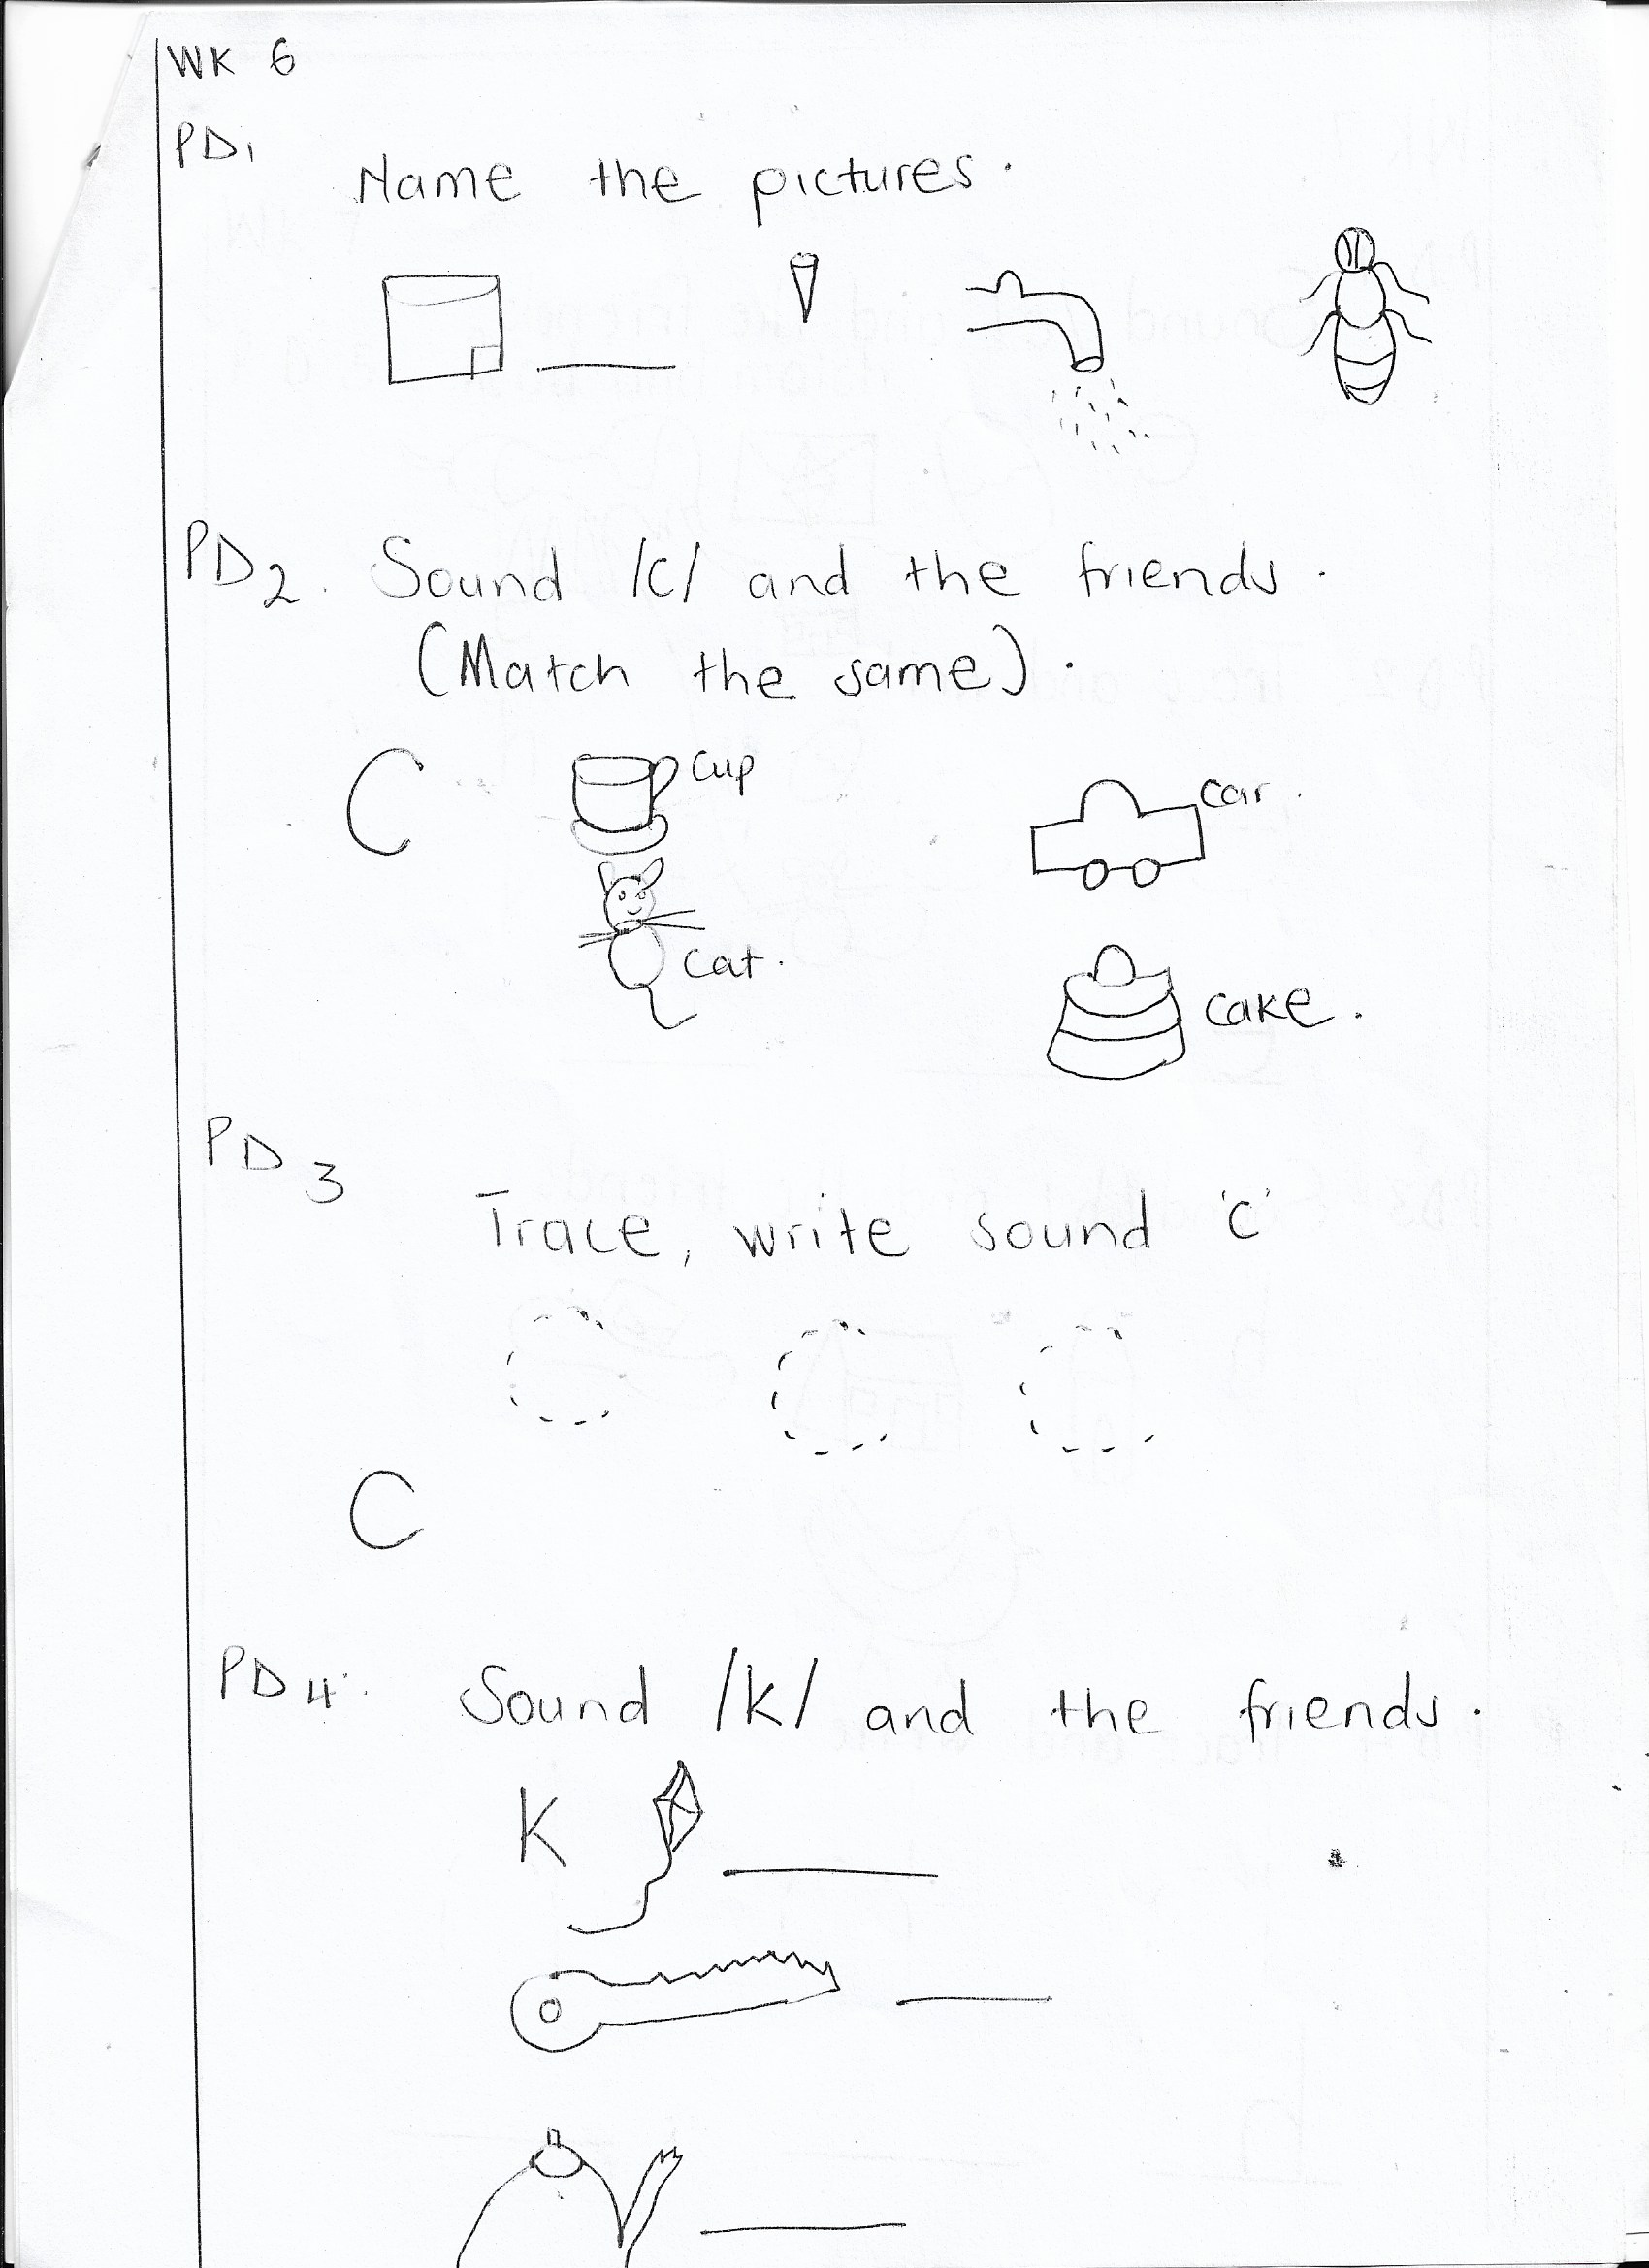 WK 6
PD1
Name the pictures.
PD2. Sound /c/ and the friends.
(Match the same).
C
cup
car.
cat.
cake.
PD3
Trace, write sound 'c'
c c c
C
PD4. Sound /k/ and the friends.
K